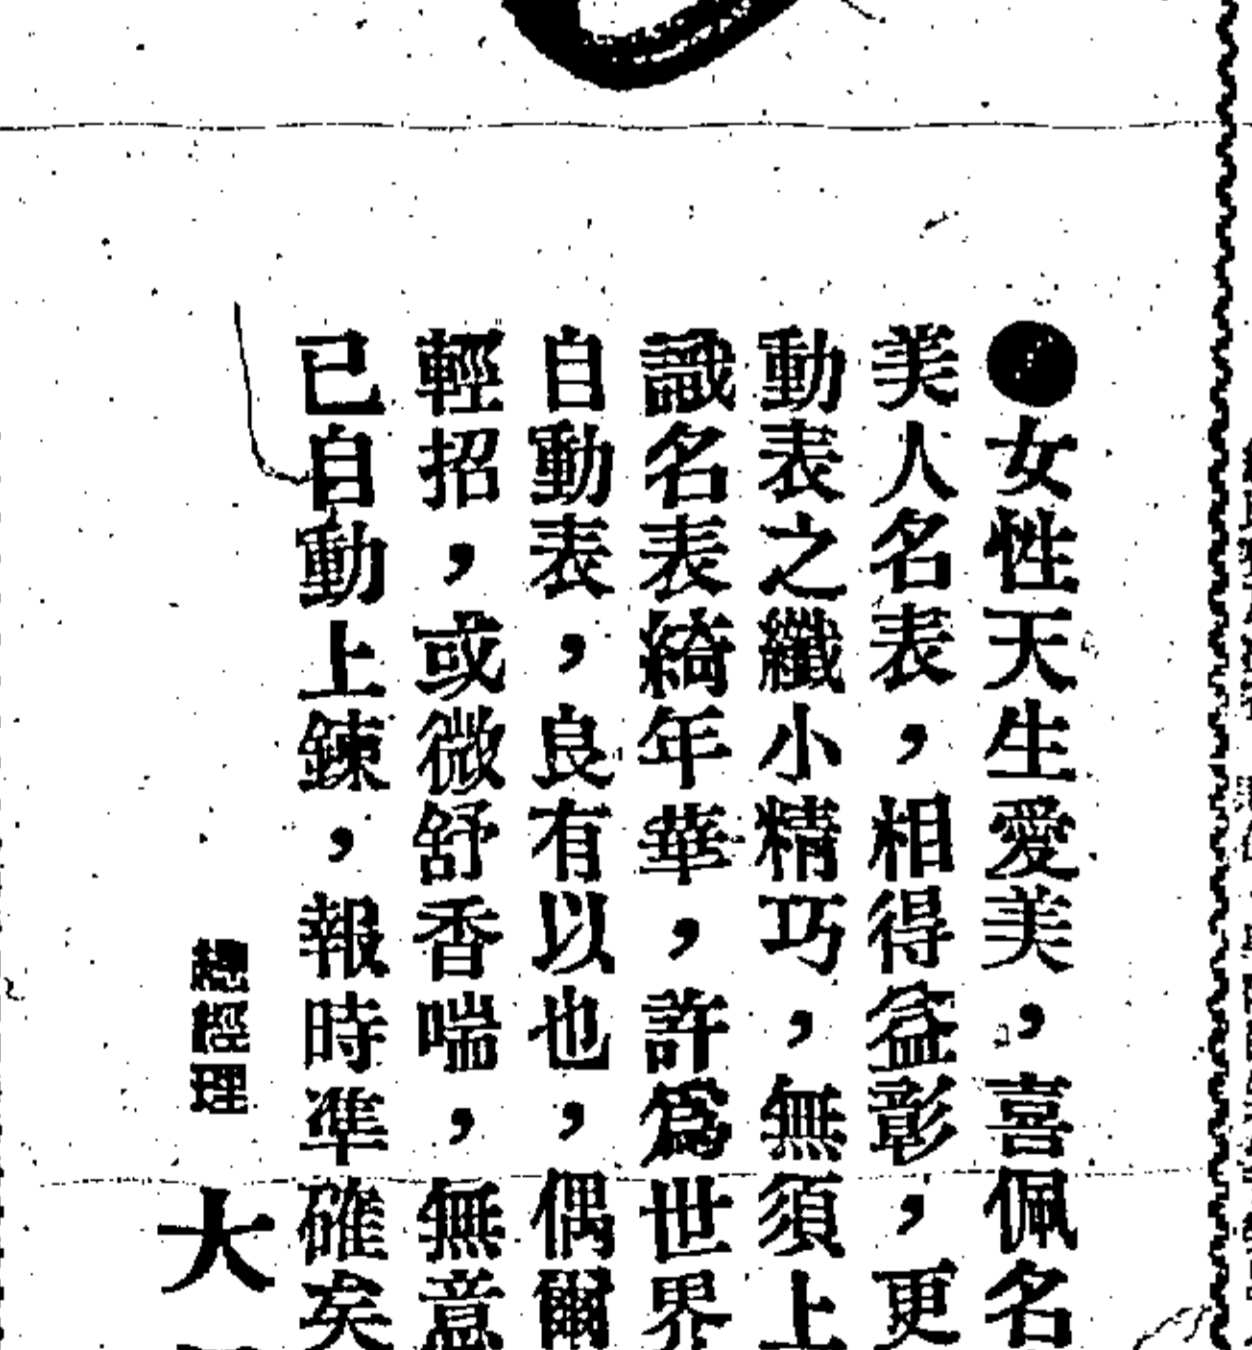 ●女性天生愛美，喜佩名
美人名表，相得益彰，更
動表之纖小精巧，無須上
識名表綺年華，許爲世界
自動表，良有以也，偶爾
輕招，或微舒香喘，無意
已自動上鍊，報時準確矣
總經理
大